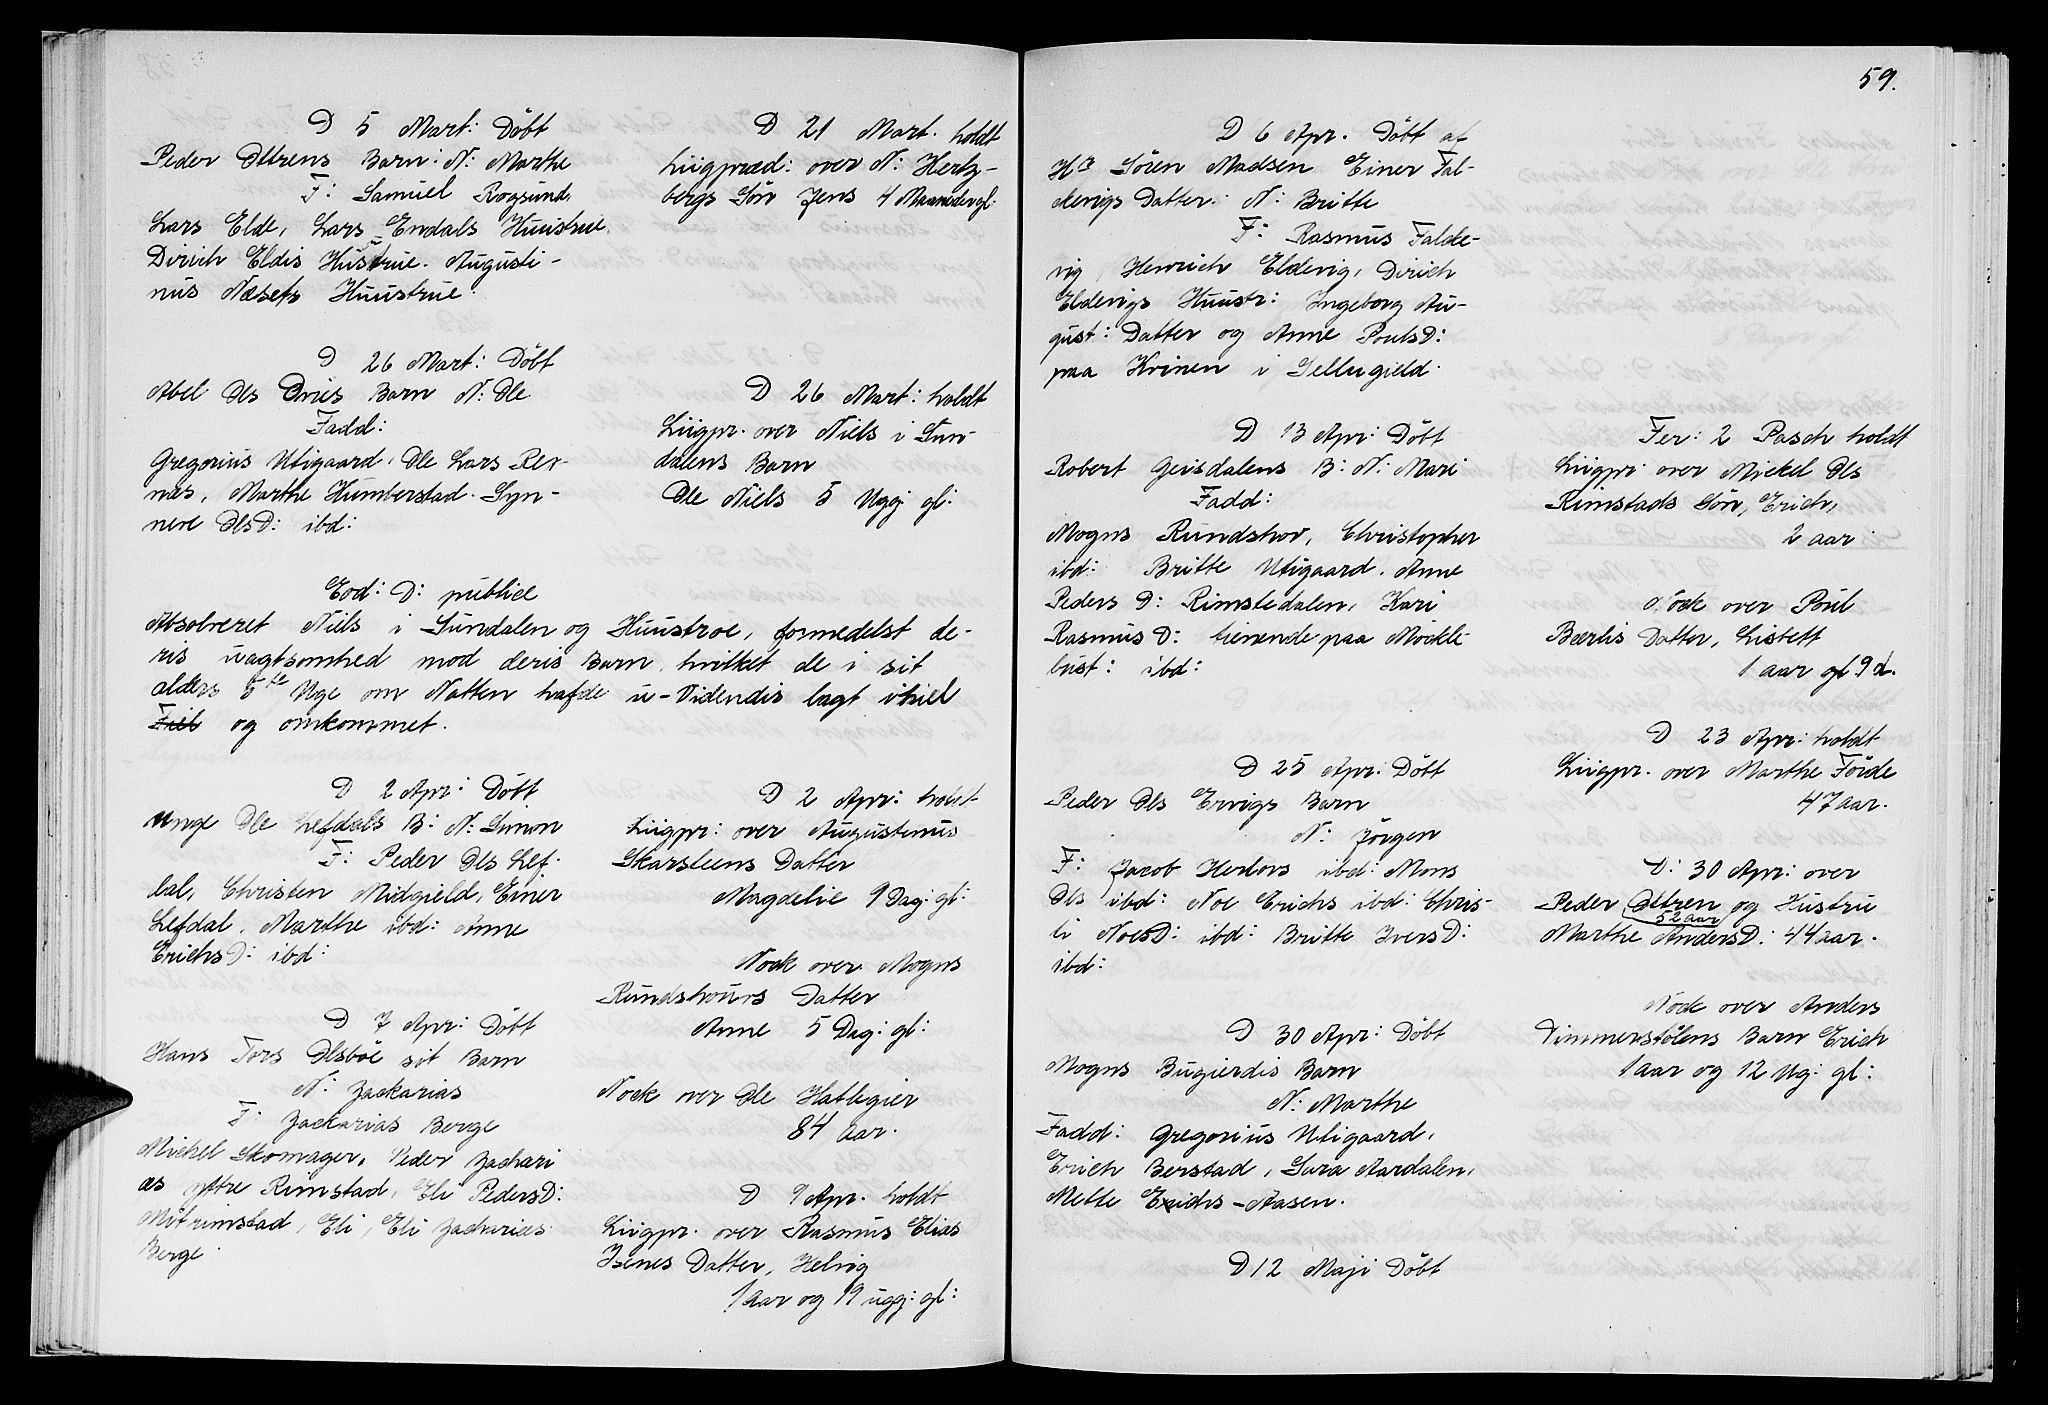 D 5 Mart: Döbt
Peder Ottrens Barn: N: Marthe
F: Samuel Rogsund
Lars Elde, Lars Endals Huustrue.
Dirich Eldis Hustrue. Augusti-
nus Næsets Huustrue.
D 26 Mart: Döbt
Abel Ols Ories Barn N: Ole
Fadd:
Gregorius Utigaard, Ole Lars Rev-
nes, Marthe Humberstad. Syn-
neve OlsD: ibd:
Eod: D: publice
Absolveret Niels i Sundalen og Huustroe, formedelst de-
ris uagtsomhed mod deris Barn, hvilket de i sit
alders 5te Uge om Natten hafde u-Videndis lagt ihiel
Fiel og omkommet.
D 2 Apr: Döbt
unge Ole Lefdals B: N: Simon
F: Peder Ols Lef-
dal, Christen Midgield, Einer
Lefdal, Marthe ibd: Anne
ErichsD: ibd:
D 7 Apr: Döbt
Hans Tors Olsböe sit Barn
N: Zackarias
F: Zackarias Berge
Mickel Skomager, Peder Zachari
as yttre Rimstad, Eli PedersD:
Mitrimstad, Eli, Eli Zacharies
Berge.
D 21 Mart. holdt
Liigpræd: over N: Hertz-
bergs Sön Jens 4 Maaneder gl.
D 26 Mart: holdt
Liigpr. over Niels i Sun-
dalens Barn
Ole Niels 5 Ugg gl:
D 2 Apr: holdt
Liigpr: over Augustinus
Skarsteens Datter
Magdelie 9 Dag: gl:
Nock over Mogns
Rundshours Datter
Anne 5 Dag: gl:
Nock over Ole Hatlegier
84 aar.
D 9 Apr. holdt
Liigpr. over Rasmus Elias
Isenes Datter, Helvig
1 aar og 19 ugg: gl:
59.
D 6 Apr. Döbt af
Hr Sören Madsen Einer Fal-
ckevigs Datter: N: Britte
F: Rasmus Falcke-
vig, Henrich Eldevig, Dirich
Eldevigs Huustr: Ingeborg Au-
gust: Datter og Anne PoulsD:
paa Hvinen i Sellugield.
D 13 Apr: Döbt
Robert Geisdalens B: N: Mari
Fadd:
Mogns Rundshov, Christopher
ibd: Britte Utigaard. Anne
Peders D: Rimstedalen, Kari
Rasmus D: tienende paa Möckle-
bust: ibd:
D 25 Apr: Döbt
Peder Ols Ervigs Barn
N: Jörgen
F: Jacob Herlovs ibd: Mons
Ols ibd: Noe Erichs ibd: Chris-
ti NoesD: ibd: Britte IversD:
ibd:
D 30 Apr: Döbt
Mogns Bugierdis Barn
N: Marthe
Fadd: Gregorius Utigaard,
Erich Berstad, Sura Aardalen,
Mette Erichs-Aasen.
D 12 Maji Döbt
Fer: 2 Pasch holdt
Liigpr: over Mickel Ols
Rimstads Sön, Erich,
2 aar
Nock over Poul
Bærlis Datter, Lisbett
1 aar gl 9 d.
D 23 Apr: holdt
Liigpr. over Marthe Förde
47 aar.
D: 30 Apr: over
Peder Ottren og Hustru
52 aar
Marthe AndersD: 44 aar.
Nock over Anders
Timmerstölens Barn Erich
1 aar og 12 Ug: gl: